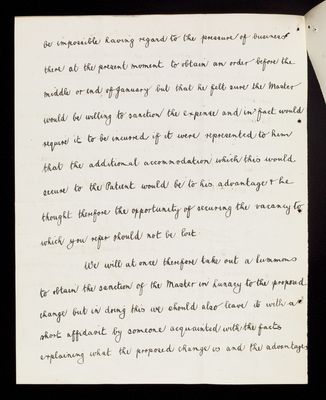 be impossible having regard to the pressure of business
there at the present moment to obtain an order before the
middle or end of January but that he felt sure the Master
would be willing to sanction the expense and in fact would
require it to be incurred if it were represented to him
that the additional accommodation which this would
secure to the Patient would be to his advantage & he
thought therefore the opportunity of securing the vacancy to
which you refer should not be lost
We will at once therefore take out a Summons
to obtain the sanction of the Master in Lunacy to the proposed
change but in doing this we should also leave it with a
short affidavit by someone acquainted with the facts
explaining what the proposed change is and the advantages